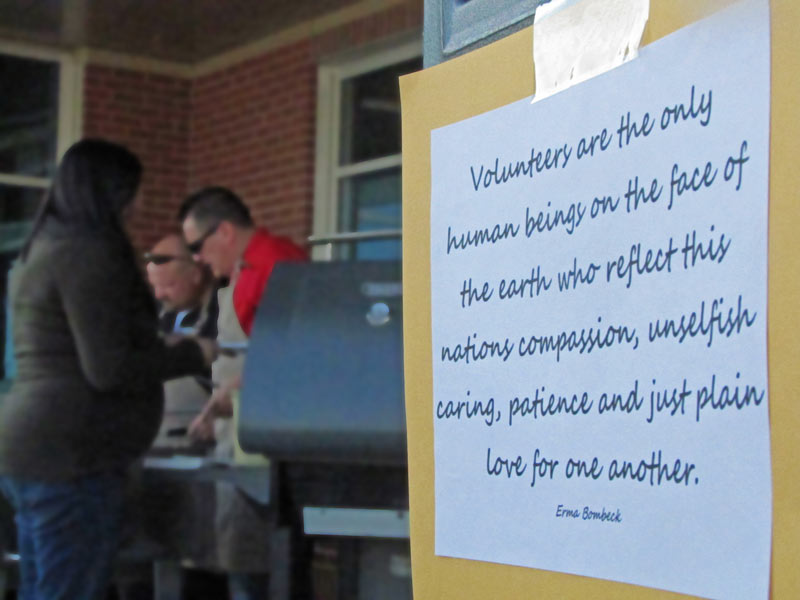 Volunteers are the only
human beings on the face of
the earth who reflect this
nations compassion, unselfish
caring, patience and just plain
love for one another.
Erma Bombeck